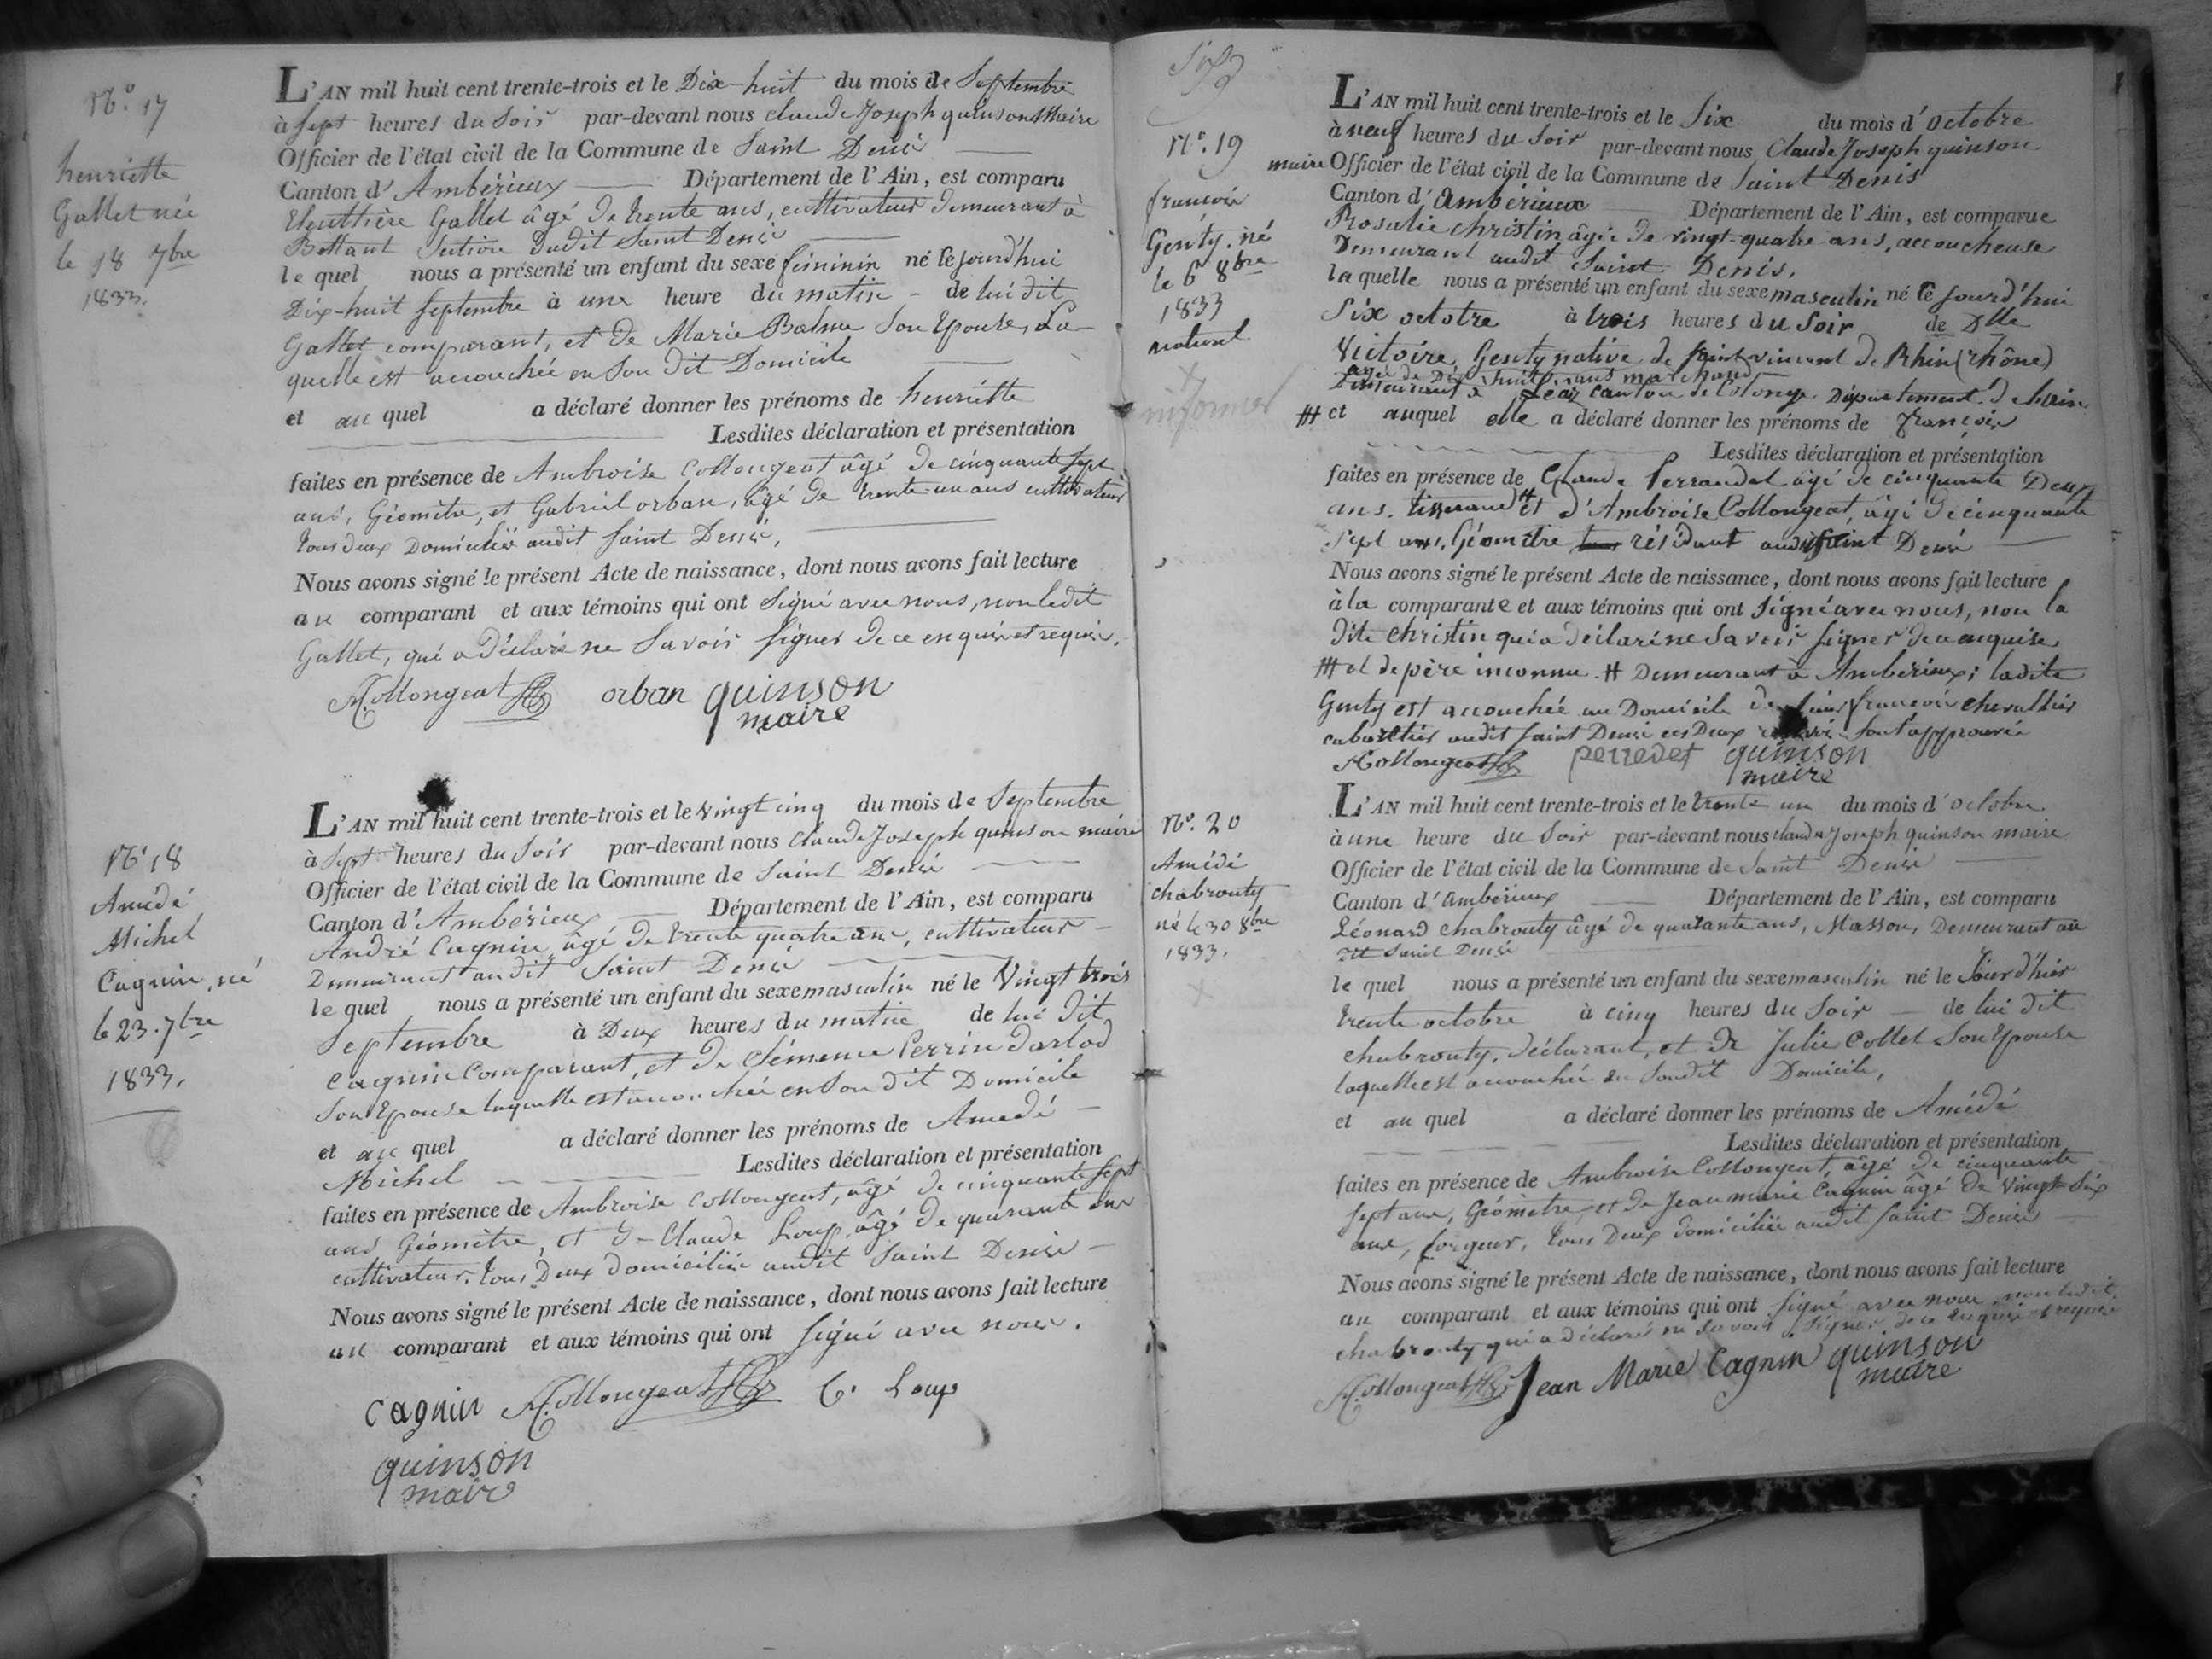 N.° 17
henriette
Gallet née
le 18 7bre
1833.
L'AN mil huit cent trente-trois et le Dix-huit du mois de Septembre
à sept heures du Soir par-devant nous Claude Joseph quinson Maire
Officier de l'état civil de la Commune de Saint Denis
Canton d'Ambérieux Département de l'Ain, est comparu
Gallet âgé de trente ans, cultivateur demeurant à
dudit Saint Denis
le quel nous a présenté un enfant du sexe féminin né cejourd'hui
Dix-huit Septembre à une heure du matin - de lui dit
Gallet comparant, et de Marie Balme Son Epouse, La-
quelle est accouchée en Son dit Domicile
et au quel a déclaré donner les prénoms de henriette
Lesdites déclaration et présentation
faites en présence de Ambroise Collongeat âgé de cinquante sept
ans, Géomètre, et Gabriel orban, âgé de trente-un ans cultivateur
tous deux Domiciliés audit Saint Denis,
Nous avons signé le présent Acte de naissance, dont nous avons fait lecture
au comparant et aux témoins qui ont Signé avec nous, non ledit
Gallet, qui a Déclaré ne Savoir Signer de ce enquis et requis.
A. Collongeat orban quinson
maire
N.° 18
Amédé
Michel
Cagnin, né
le 23. 7bre
1833.
L'AN mil huit cent trente-trois et le Vingt cinq du mois de Septembre
à Sept heures du Soir par-devant nous Claude Joseph quinson maire
Officier de l'état civil de la Commune de Saint Denis
Canton d'Ambérieux Département de l'Ain, est comparu
André Cagnin, âgé de trente quatre ans, cultivateur
Demeurant audit Saint Denis
le quel nous a présenté un enfant du sexe masculin né le Vingt trois
Septembre à Deux heures du matin de lui dit
Cagnin Comparant, et de Clémence Perrin Darlod
Son Epouse laquelle est accouchée en Son dit Domicile
et au quel a déclaré donner les prénoms de Amédé -
Michel Lesdites déclaration et présentation
faites en présence de Ambroise Collongeat, âgé de cinquante sept
ans Géomètre, et de Claude Loup, âgé de quarante ans
cultivateur, tous Deux domiciliés audit Saint Denis -
Nous avons signé le présent Acte de naissance, dont nous avons fait lecture
au comparant et aux témoins qui ont Signé avec nous.
Cagnin A. Collongeat C. Loup
quinson
maire
N.° 19
francois
Genty. né
le 6 8bre
1833
naturel
L'AN mil huit cent trente-trois et le Six du mois d'octobre
à neuf heures du Soir par-devant nous Claude Joseph quinson
maire Officier de l'état civil de la Commune de Saint Denis
Canton d'Ambérieux Département de l'Ain, est comparue
Rosalie Christin âgée de vingt-quatre ans, accoucheuse
Demeurant audit Saint Denis,
laquelle nous a présenté un enfant du sexe masculin né cejourd'hui
Six octobre à trois heures du Soir de Dlle
Victoire Genty native de Saint Vincent de Rhin (rhône)
âgée de Dix huit ans marchande
Demeurant à canton de Département de l'ain
# et auquel elle a déclaré donner les prénoms de françois
Lesdites déclaration et présentation
faites en présence de Claude Perraudet âgé de cinquante Deux
ans. tisserand # et d'Ambroise Collongeat, âgé de cinquante
Sept ans, Géomètre résidant audit Saint Denis
Nous avons signé le présent Acte de naissance, dont nous avons fait lecture
à la comparante et aux témoins qui ont Signé avec nous, non la
dite Christin qui a déclaré ne Savoir Signer de ce enquise
# et de père inconnu. # Demeurant à Ambérieux; ladite
Genty est accouchée au Domicile de françois chevallier
cabaretier audit Saint Denis ces Deux Sont approuvés
A. Collongeat perredet quinson
maire
N.° 20
Amédé
chabrouty
né le 30 8bre
1833.
L'AN mil huit cent trente-trois et le trente un du mois d'octobre.
à une heure du Soir par-devant nous Claude Joseph quinson maire
Officier de l'état civil de la Commune de Saint Denis
Canton d'Ambérieux Département de l'Ain, est comparu
Léonard chabrouty âgé de quarante ans, Masson, Demeurant au
dit Saint Denis
le quel nous a présenté un enfant du sexe masculin né le Jour d'hier
trente octobre à cinq heures du Soir - de lui dit
chabrouty, déclarant, et de Julie Collet Son Epouse
laquelle est accouchée en Sondit Domicile,
et au quel a déclaré donner les prénoms de Amédé
Lesdites déclaration et présentation
faites en présence de Ambroise Collongeat, âgé de cinquante
sept ans, Géomètre, et de Jean marie Cagnin âgé de Vingt-Six
ans, forgeur, tous Deux domiciliés audit Saint Denis
Nous avons signé le présent Acte de naissance, dont nous avons fait lecture
au comparant et aux témoins qui ont Signé avec nous, non ledit
chabrouty qui a déclaré ne Savoir Signer de ce enquis et requis
A. Collongeat Jean Marie Cagnin quinson
maire